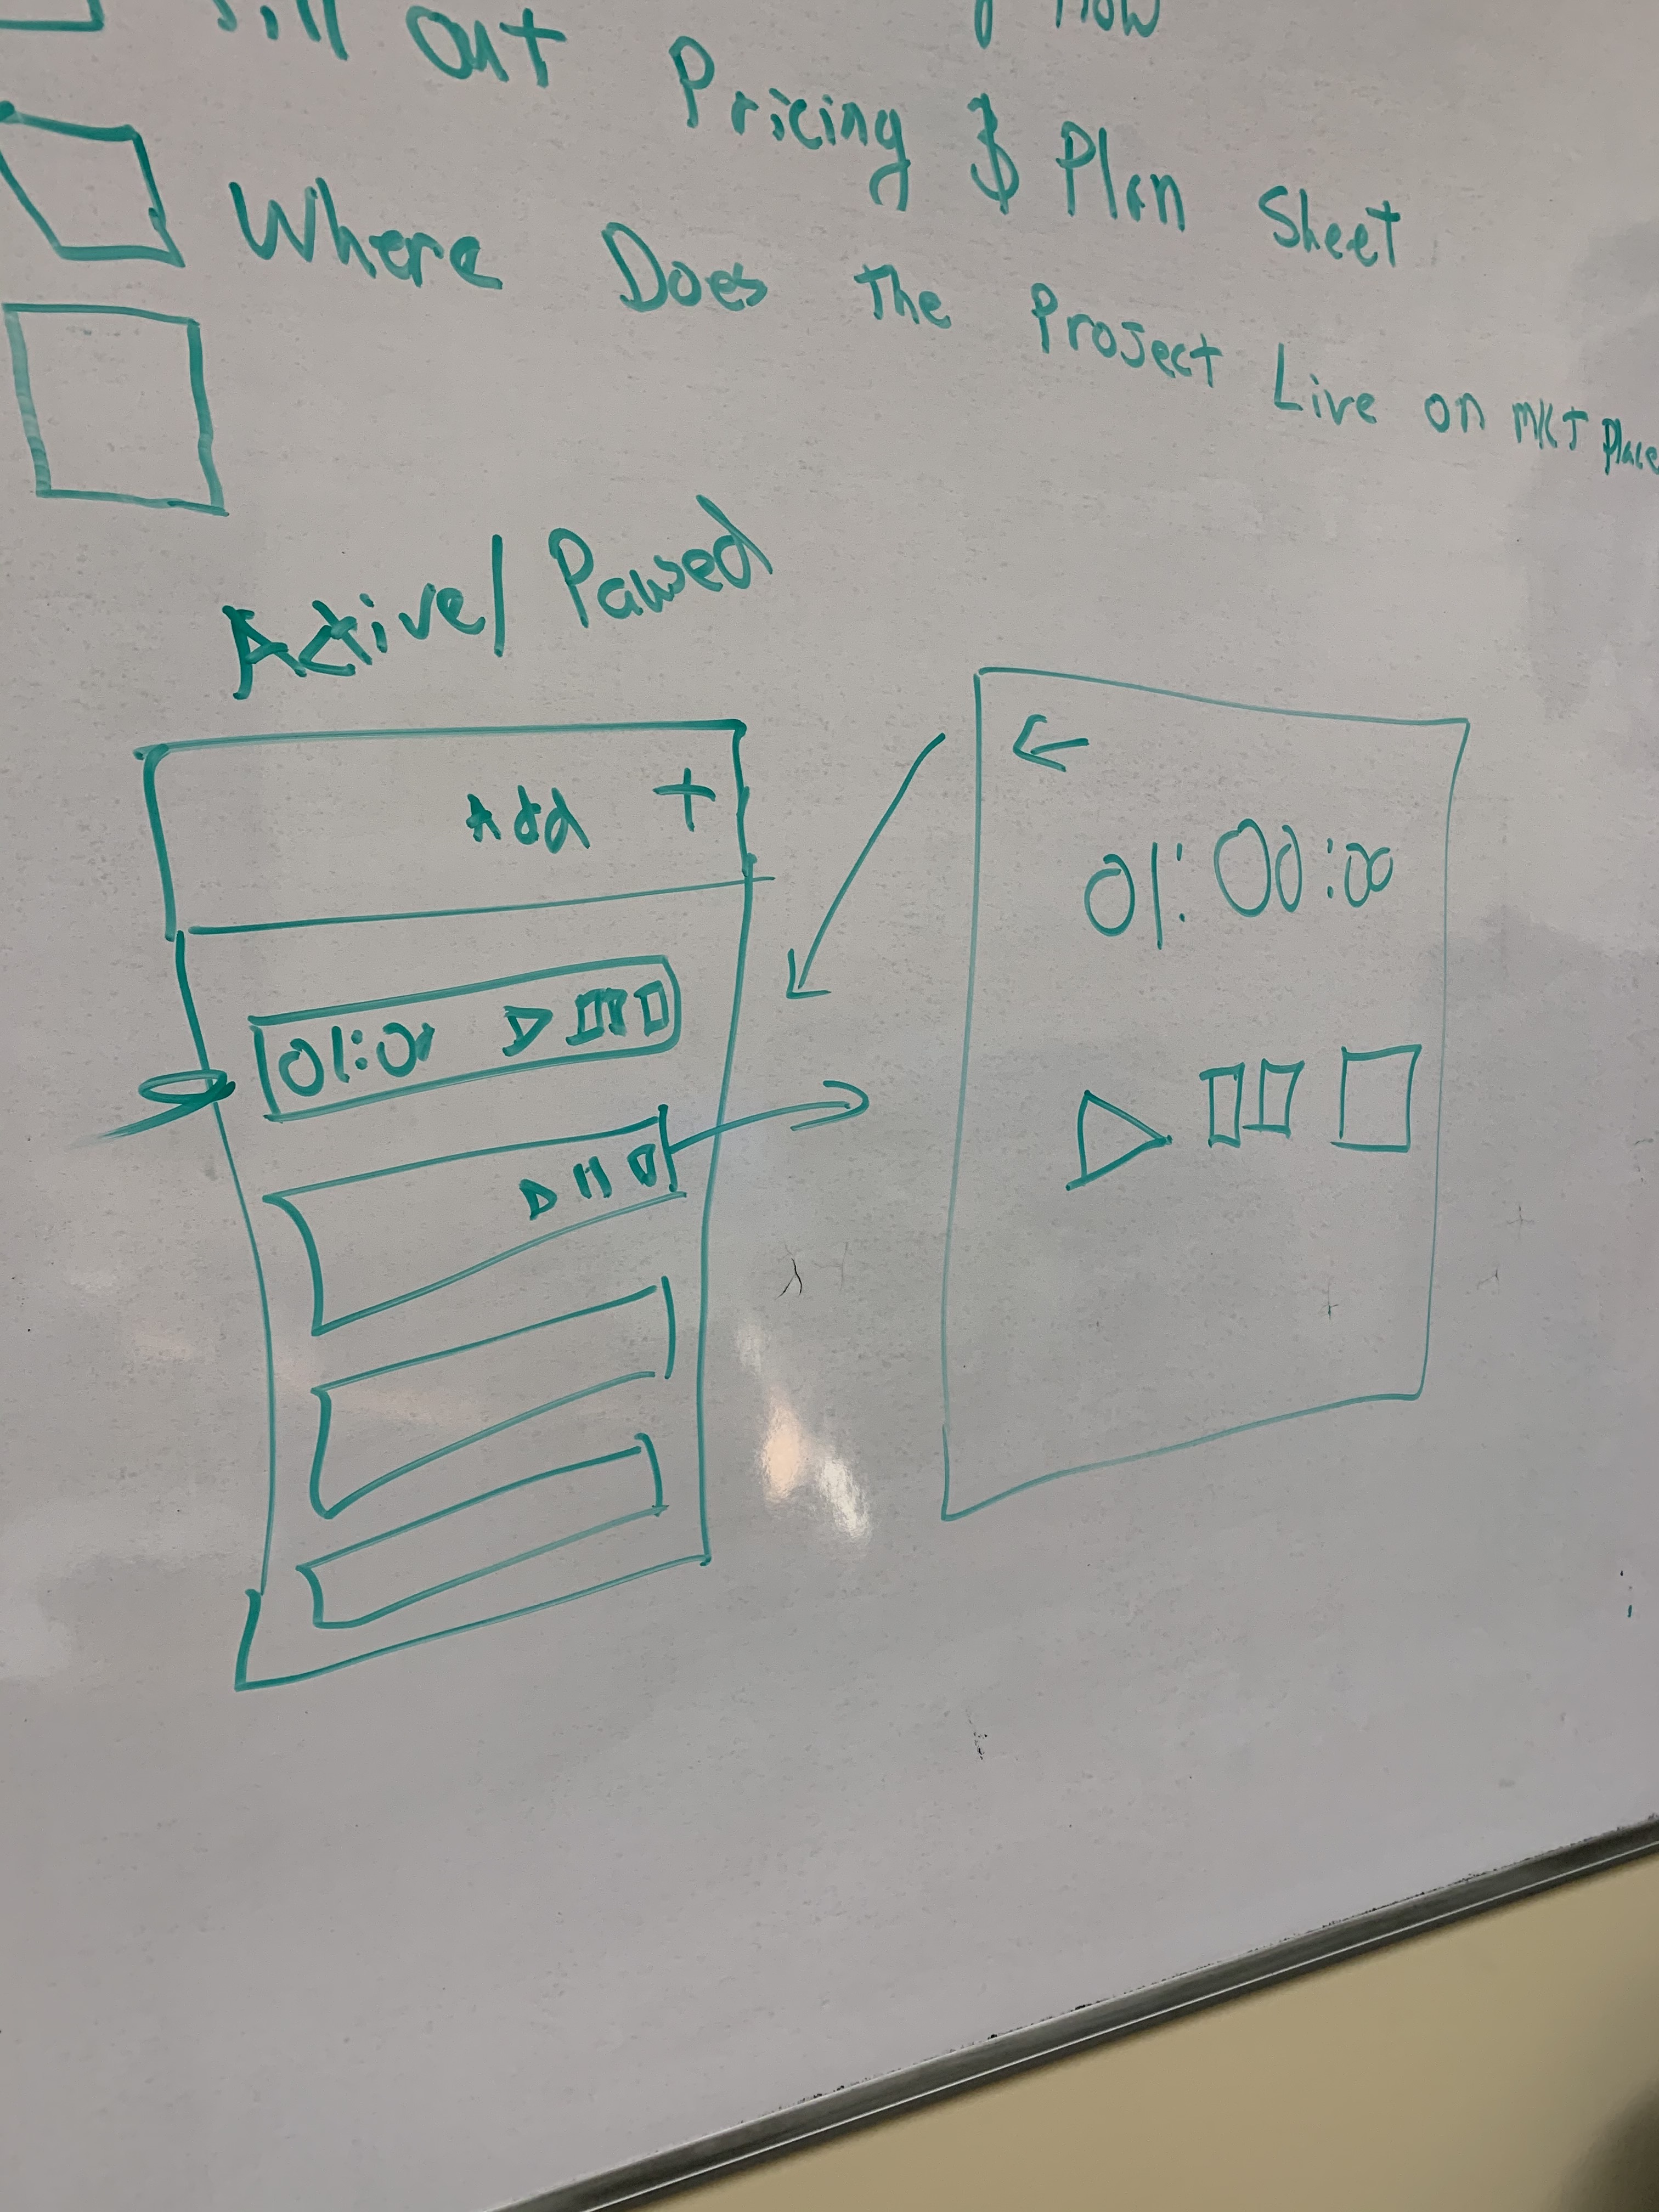 out Pricing $ Plan Sheet
Where Does The Project Live on MKT Place
Active/Paused
Add +
01:00
01:00:00